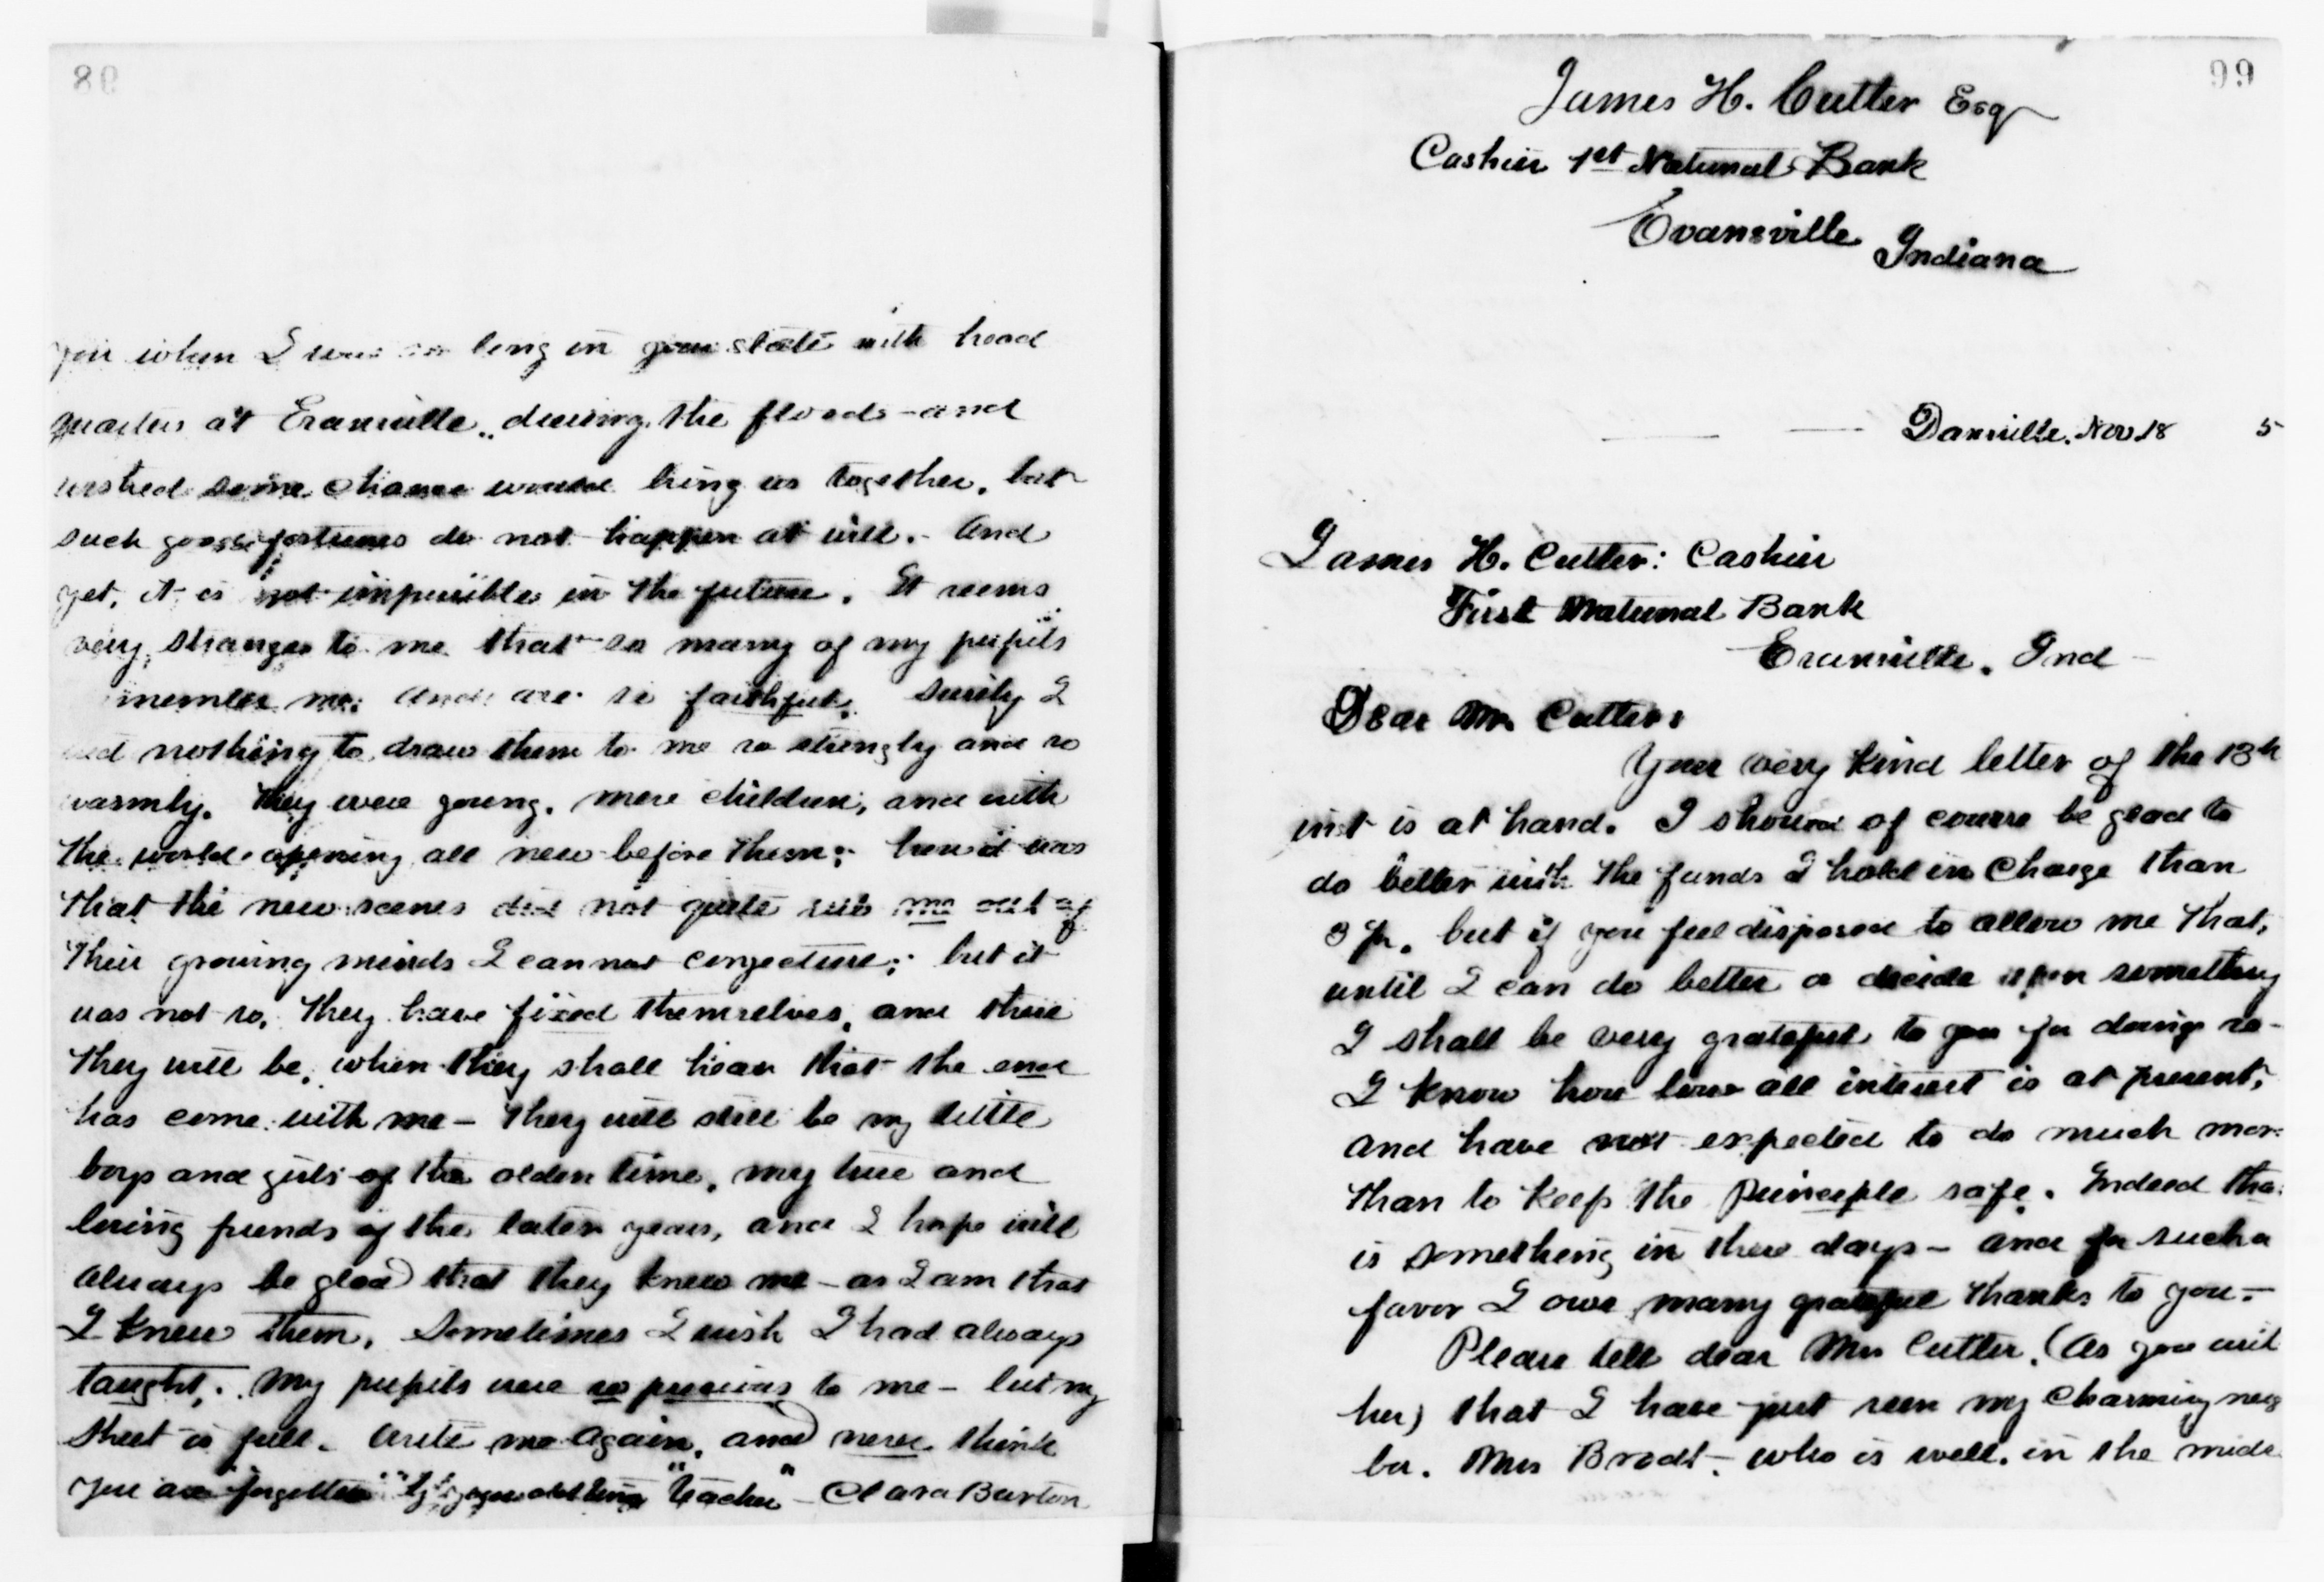 98
you when I was so long in your state with head
quarters at Evansville, during the floods - and
wished some chance would bring us together, but
such good fortunes do not happen at will. - And
yet, it is not impossible in the future. It seems
very strange to me that so many of my pupils
remember me and are so faithful. Surely I
did nothing to draw them to me so strongly and so
warmly. They were young, mere children, and with
the world opening all new before them; how it was
that the new scenes did not quite rub me out of
their growing minds I cannot conjecture; but it
was not so, they have fixed themselves, and there
they will be, when they shall hear that the end
has come with me - They will still be my little
boys and girls of the olden time, my true and
loving friends of the later years, and I hope will
always be glad that they knew me - as I am that
I knew them. Sometimes I wish I had always
taught. My pupils were so precious to me - but my
sheet is full. Write me again, and never think
you are "forgotten" by your old loving "Teacher" - Clara Barton
99
James H. Cutler Esq
Cashier 1st National Bank
Evansville Indiana
Dansville, Nov 18 5
James H. Cutler: Cashier
First National Bank
Evansville, Ind -
Dear Mr. Cutler:
Your very kind letter of the 13th
inst is at hand. I should of course be glad to
do better with the funds I hold in charge than
3 pr. but if you feel disposed to allow me that,
until I can do better or decide upon something
I shall be very grateful to you for doing so -
I know how low all interest is at present,
and have not expected to do much mor
than to keep the principle safe. Indeed tha
is something in these days - and for such a
favor I owe many grateful thanks to you. -
Please tell dear Mrs Cutler, (as you writ
her) that I have just seen my charming neig
bor. Mrs Brodt - who is well, in the mids